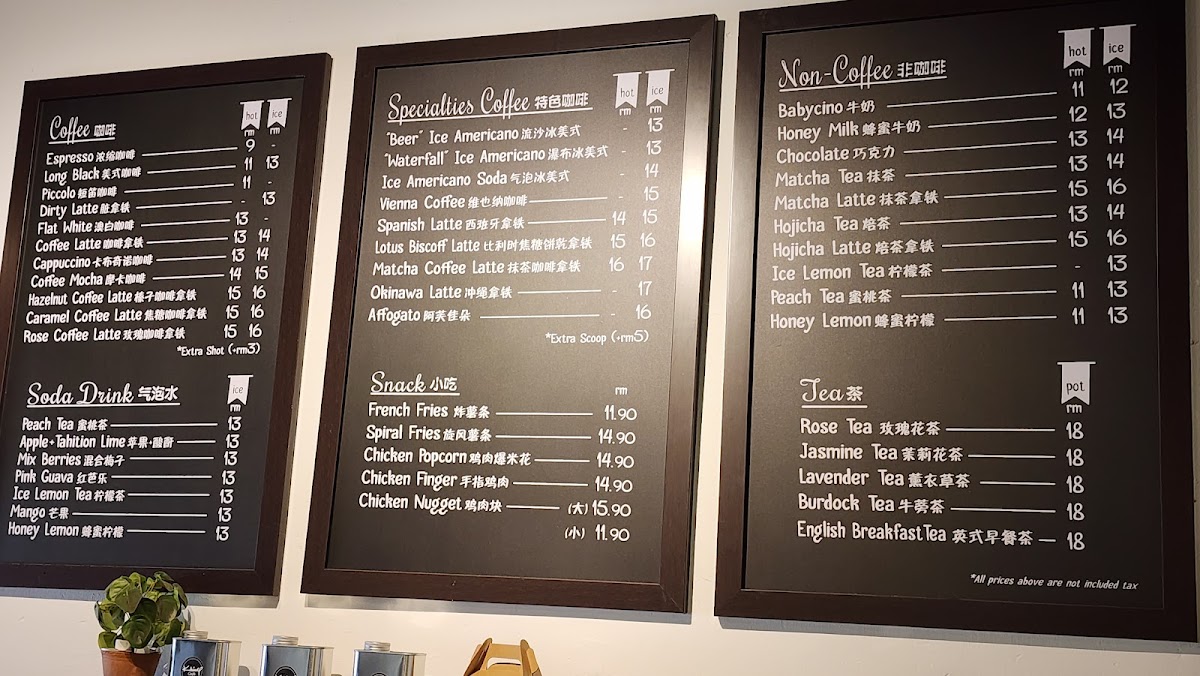 Coffee 咖啡 hot ice
rm rm
Espresso 浓缩咖啡 9 -
Long Black 美式咖啡 11 13
Piccolo 短笛咖啡 11 -
Dirty Latte 脏拿铁 - 13
Flat White 澳白咖啡 13 -
Coffee Latte 咖啡拿铁 13 14
Cappuccino 卡布奇诺咖啡 13 14
Coffee Mocha 摩卡咖啡 14 15
Hazelnut Coffee Latte 榛子咖啡拿铁 15 16
Caramel Coffee Latte 焦糖咖啡拿铁 15 16
Rose Coffee Latte 玫瑰咖啡拿铁 15 16
*Extra Shot (+rm3)
Soda Drink 气泡水 ice
rm
Peach Tea 蜜桃茶 13
Apple+Tahition Lime 苹果+酸酣 13
Mix Berries 混合梅子 13
Pink Guava 红芭乐 13
Ice Lemon Tea 柠檬茶 13
Mango 芒果 13
Honey Lemon 蜂蜜柠檬 13
Specialties Coffee 特色咖啡 hot ice
rm rm
"Beer" Ice Americano 流沙冰美式 - 13
"Waterfall" Ice Americano 瀑布冰美式 - 13
Ice Americano Soda 气泡冰美式 - 14
Vienna Coffee 维也纳咖啡 - 15
Spanish Latte 西班牙拿铁 14 15
Lotus Biscoff Latte 比利时焦糖饼乾拿铁 15 16
Matcha Coffee Latte 抹茶咖啡拿铁 16 17
Okinawa Latte 冲绳拿铁 - 17
Affogato 阿芙佳朵 - 16
*Extra Scoop (+rm5)
Snack 小吃 rm
French Fries 炸薯条 11.90
Spiral Fries 旋风薯条 14.90
Chicken Popcorn 鸡肉爆米花 14.90
Chicken Finger 手指鸡肉 14.90
Chicken Nugget 鸡肉块 (大) 15.90
(小) 11.90
Non-Coffee 非咖啡 hot ice
rm rm
Babycino 牛奶 11 12
Honey Milk 蜂蜜牛奶 12 13
Chocolate 巧克力 13 14
Matcha Tea 抹茶 13 14
Matcha Latte 抹茶拿铁 15 16
Hojicha Tea 焙茶 13 14
Hojicha Latte 焙茶拿铁 15 16
Ice Lemon Tea 柠檬茶 - 13
Peach Tea 蜜桃茶 11 13
Honey Lemon 蜂蜜柠檬 11 13
Tea 茶 pot
rm
Rose Tea 玫瑰花茶 18
Jasmine Tea 茉莉花茶 18
Lavender Tea 薰衣草茶 18
Burdock Tea 牛蒡茶 18
English Breakfast Tea 英式早餐茶 18
*All prices above are not included tax